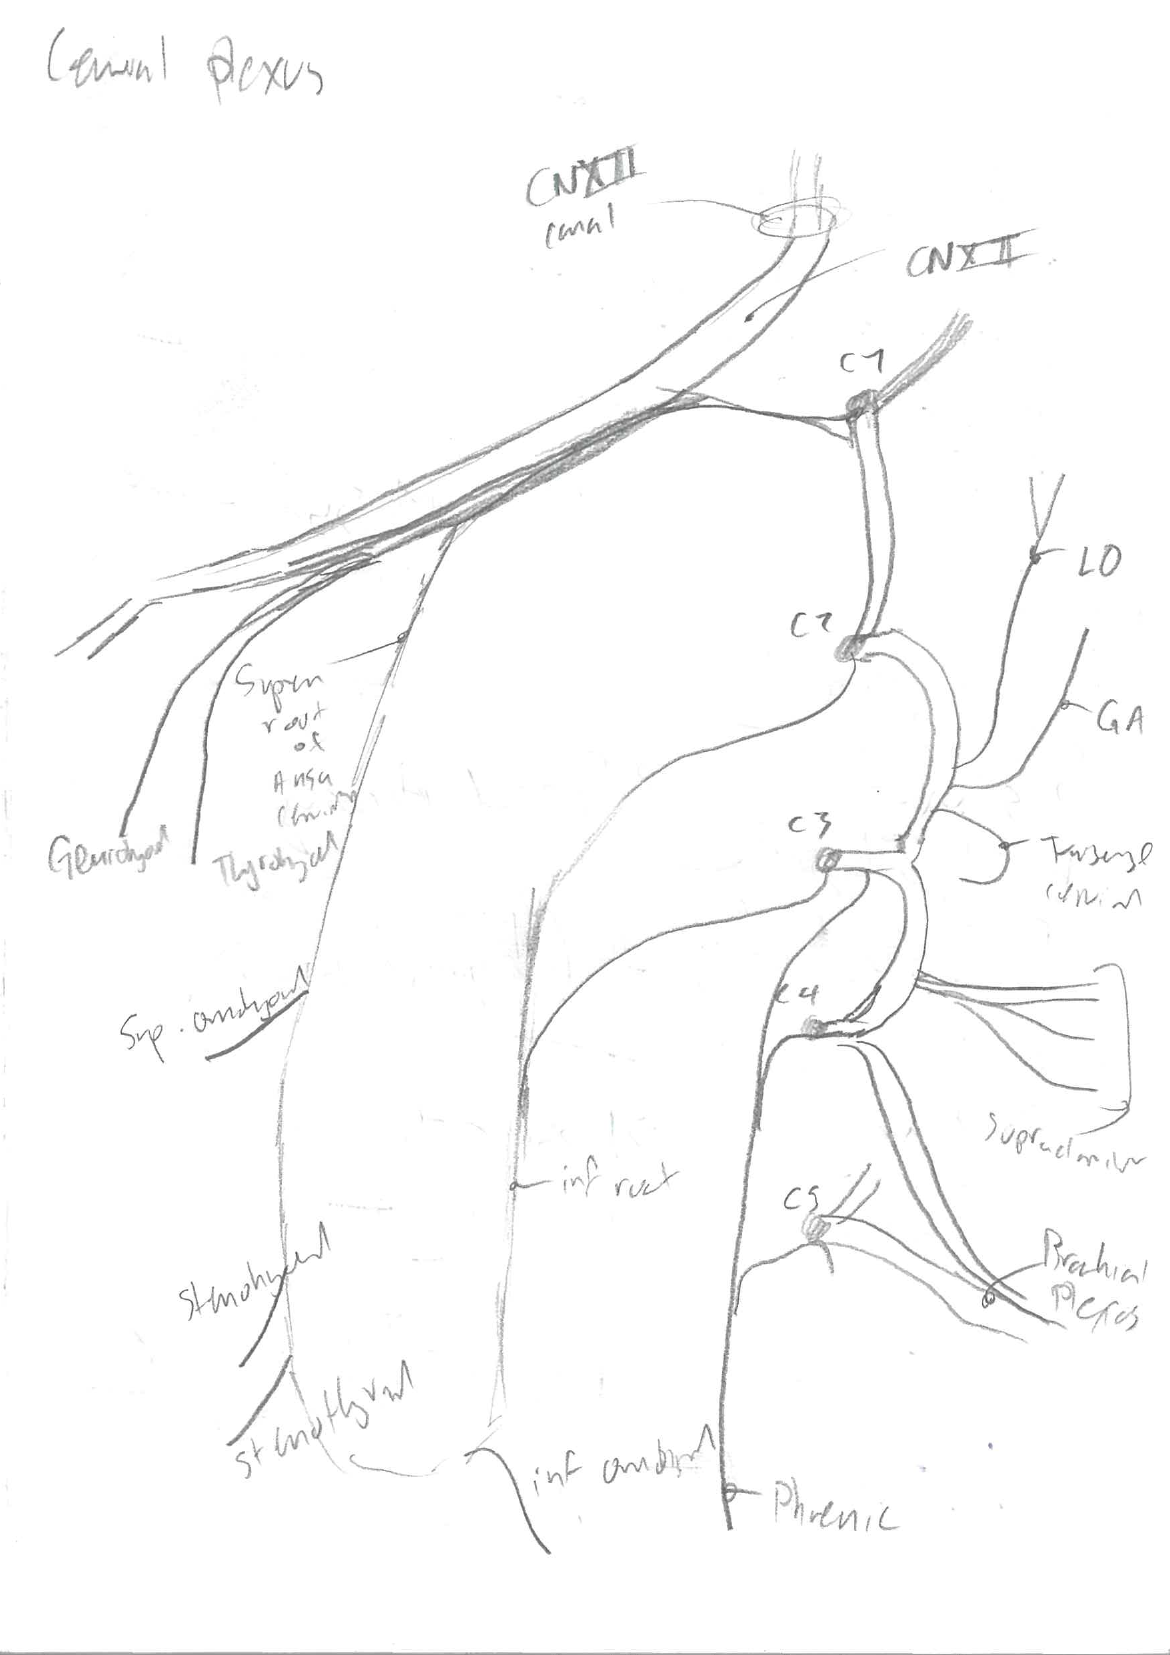 Cervical plexus
CNXII
canal
CNXII
C1
LO
C2
GA
Superior
root
of
Ansa
Cervicalis
C3
Geniohyoid
Thyrohyoid
Transverse
cervical
C4
Sup. omohyoid
Supraclavicular
inf root
C5
Brachial
Plexus
Sternohyoid
Sternothyroid
inf omohyoid
Phrenic